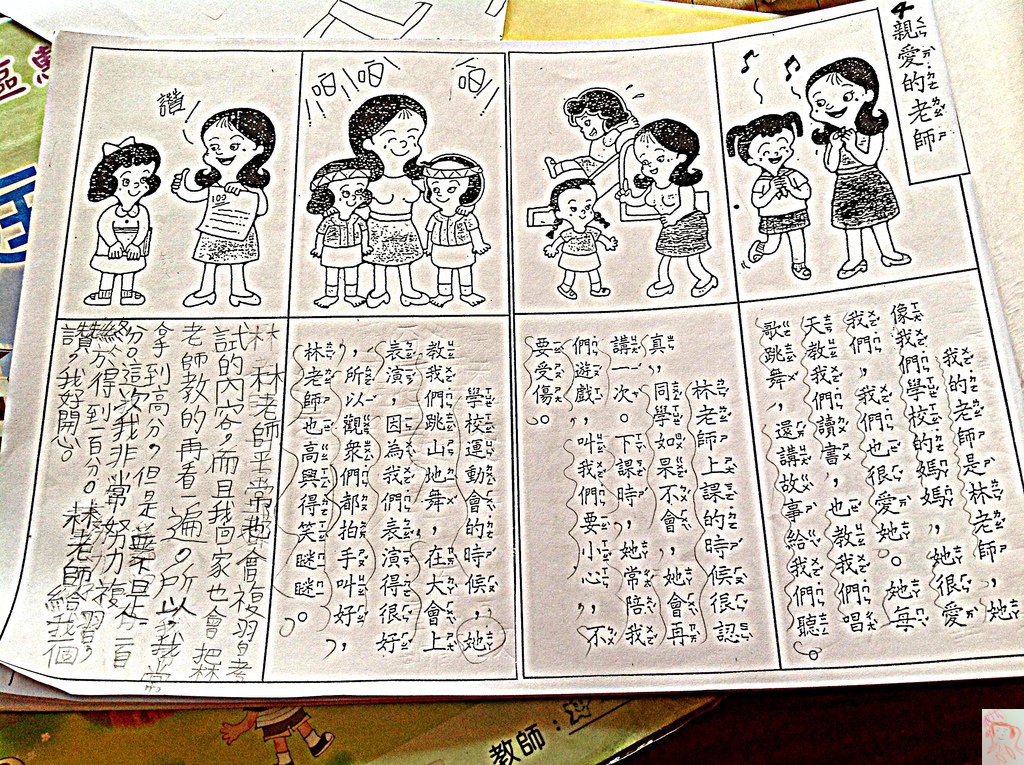 4
親愛的老師
我的老師是林老師，她
像我們學校的媽媽，她很愛
我們，我們也很愛她。她每
天教我們讀書，也教我們唱
歌跳舞，還講故事給我們聽
。
林老師上課的時候很認
真，同學如果不會，她會再
講一次。下課時，她常陪我
們遊戲，叫我們要小心，不
要受傷。
啪
啪
啪
學校運動會的時候，她
教我們跳山地舞，在大會上
表演，因為我們表演得很好
，所以觀眾們都拍手叫好，
林老師也高興得笑瞇瞇。
讚
100
林 林老師平常也會複習考
試的內容，而且我回家也會把林
老師教的再看一遍。所以，我常
拿到高分，但是 不是一百
分。這次我非常努力複習，
終於得到一百分。林老師給我個
讚，我好開心。
教師：
區